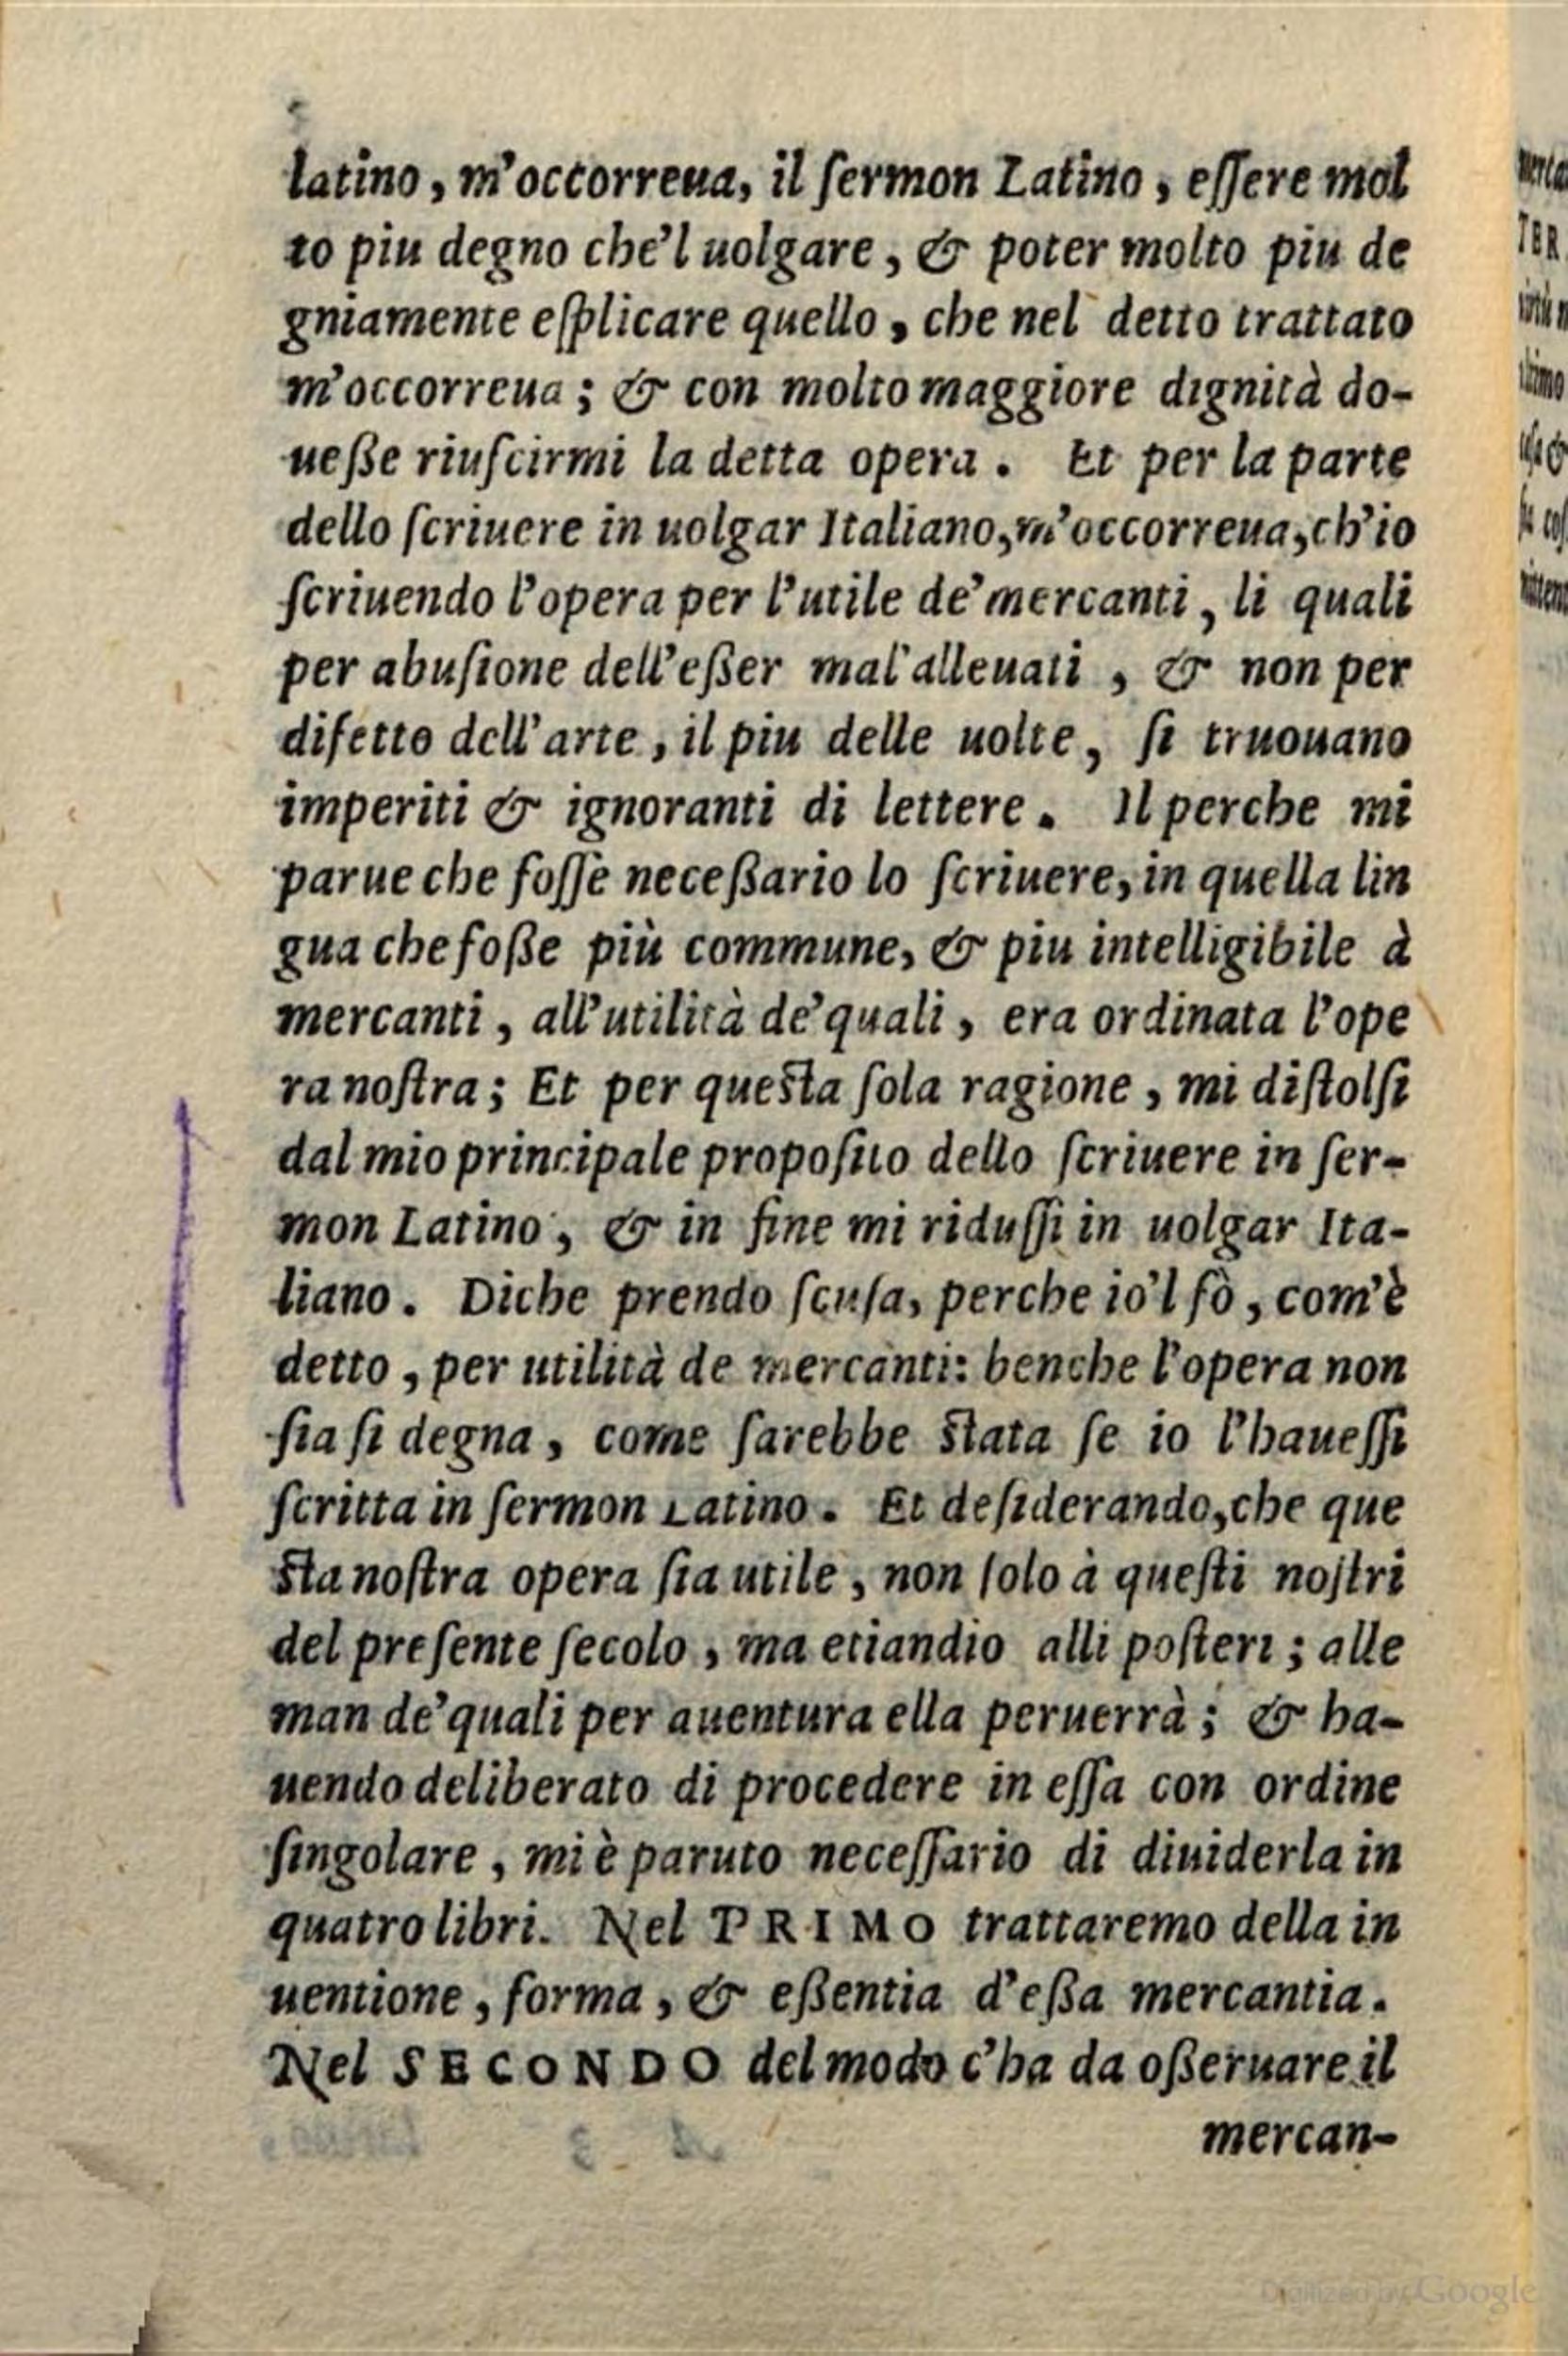 latino, m'occorreua, il ſermon Latino, eſſere mol
to piu degno che'l uolgare, & poter molto piu de
gniamente eſplicare quello, che nel detto trattato
m'occorreua; & con molto maggiore dignità do-
ueße riuſcirmi la detta opera. Et per la parte
dello ſcriuere in uolgar Italiano, m'occorreua, ch'io
ſcriuendo l'opera per l'utile de' mercanti, li quali
per abuſione dell'eßer mal'alleuati, & non per
difetto dell'arte, il piu delle uolte, ſi truouano
imperiti & ignoranti di lettere. Il perche mi
parue che foſſe neceßario lo ſcriuere, in quella lin
gua che foße più commune, & piu intelligibile à
mercanti, all'utilità de' quali, era ordinata l'ope
ra noſtra; Et per queſta ſola ragione, mi diſtolſi
dal mio principale propoſito dello ſcriuere in ſer-
mon Latino, & in fine mi riduſſi in uolgar Ita-
liano. Diche prendo ſcuſa, perche io'l fò, com'è
detto, per utilità de mercanti: benche l'opera non
ſia ſi degna, come ſarebbe ſtata ſe io l'haueſſi
ſcritta in ſermon Latino. Et deſiderando, che que
ſta noſtra opera ſia utile, non ſolo à queſti noſtri
del preſente ſecolo, ma etiandio alli poſteri; alle
man de' quali per auentura ella peruerrà; & ha-
uendo deliberato di procedere in eſſa con ordine
ſingolare, mi è paruto neceſſario di diuiderla in
quatro libri. Nel PRIMO trattaremo della in
uentione, forma, & eßentia d'eßa mercantia.
Nel SECONDO del modo c'ha da oßeruare il
mercan-
Digitized by Google